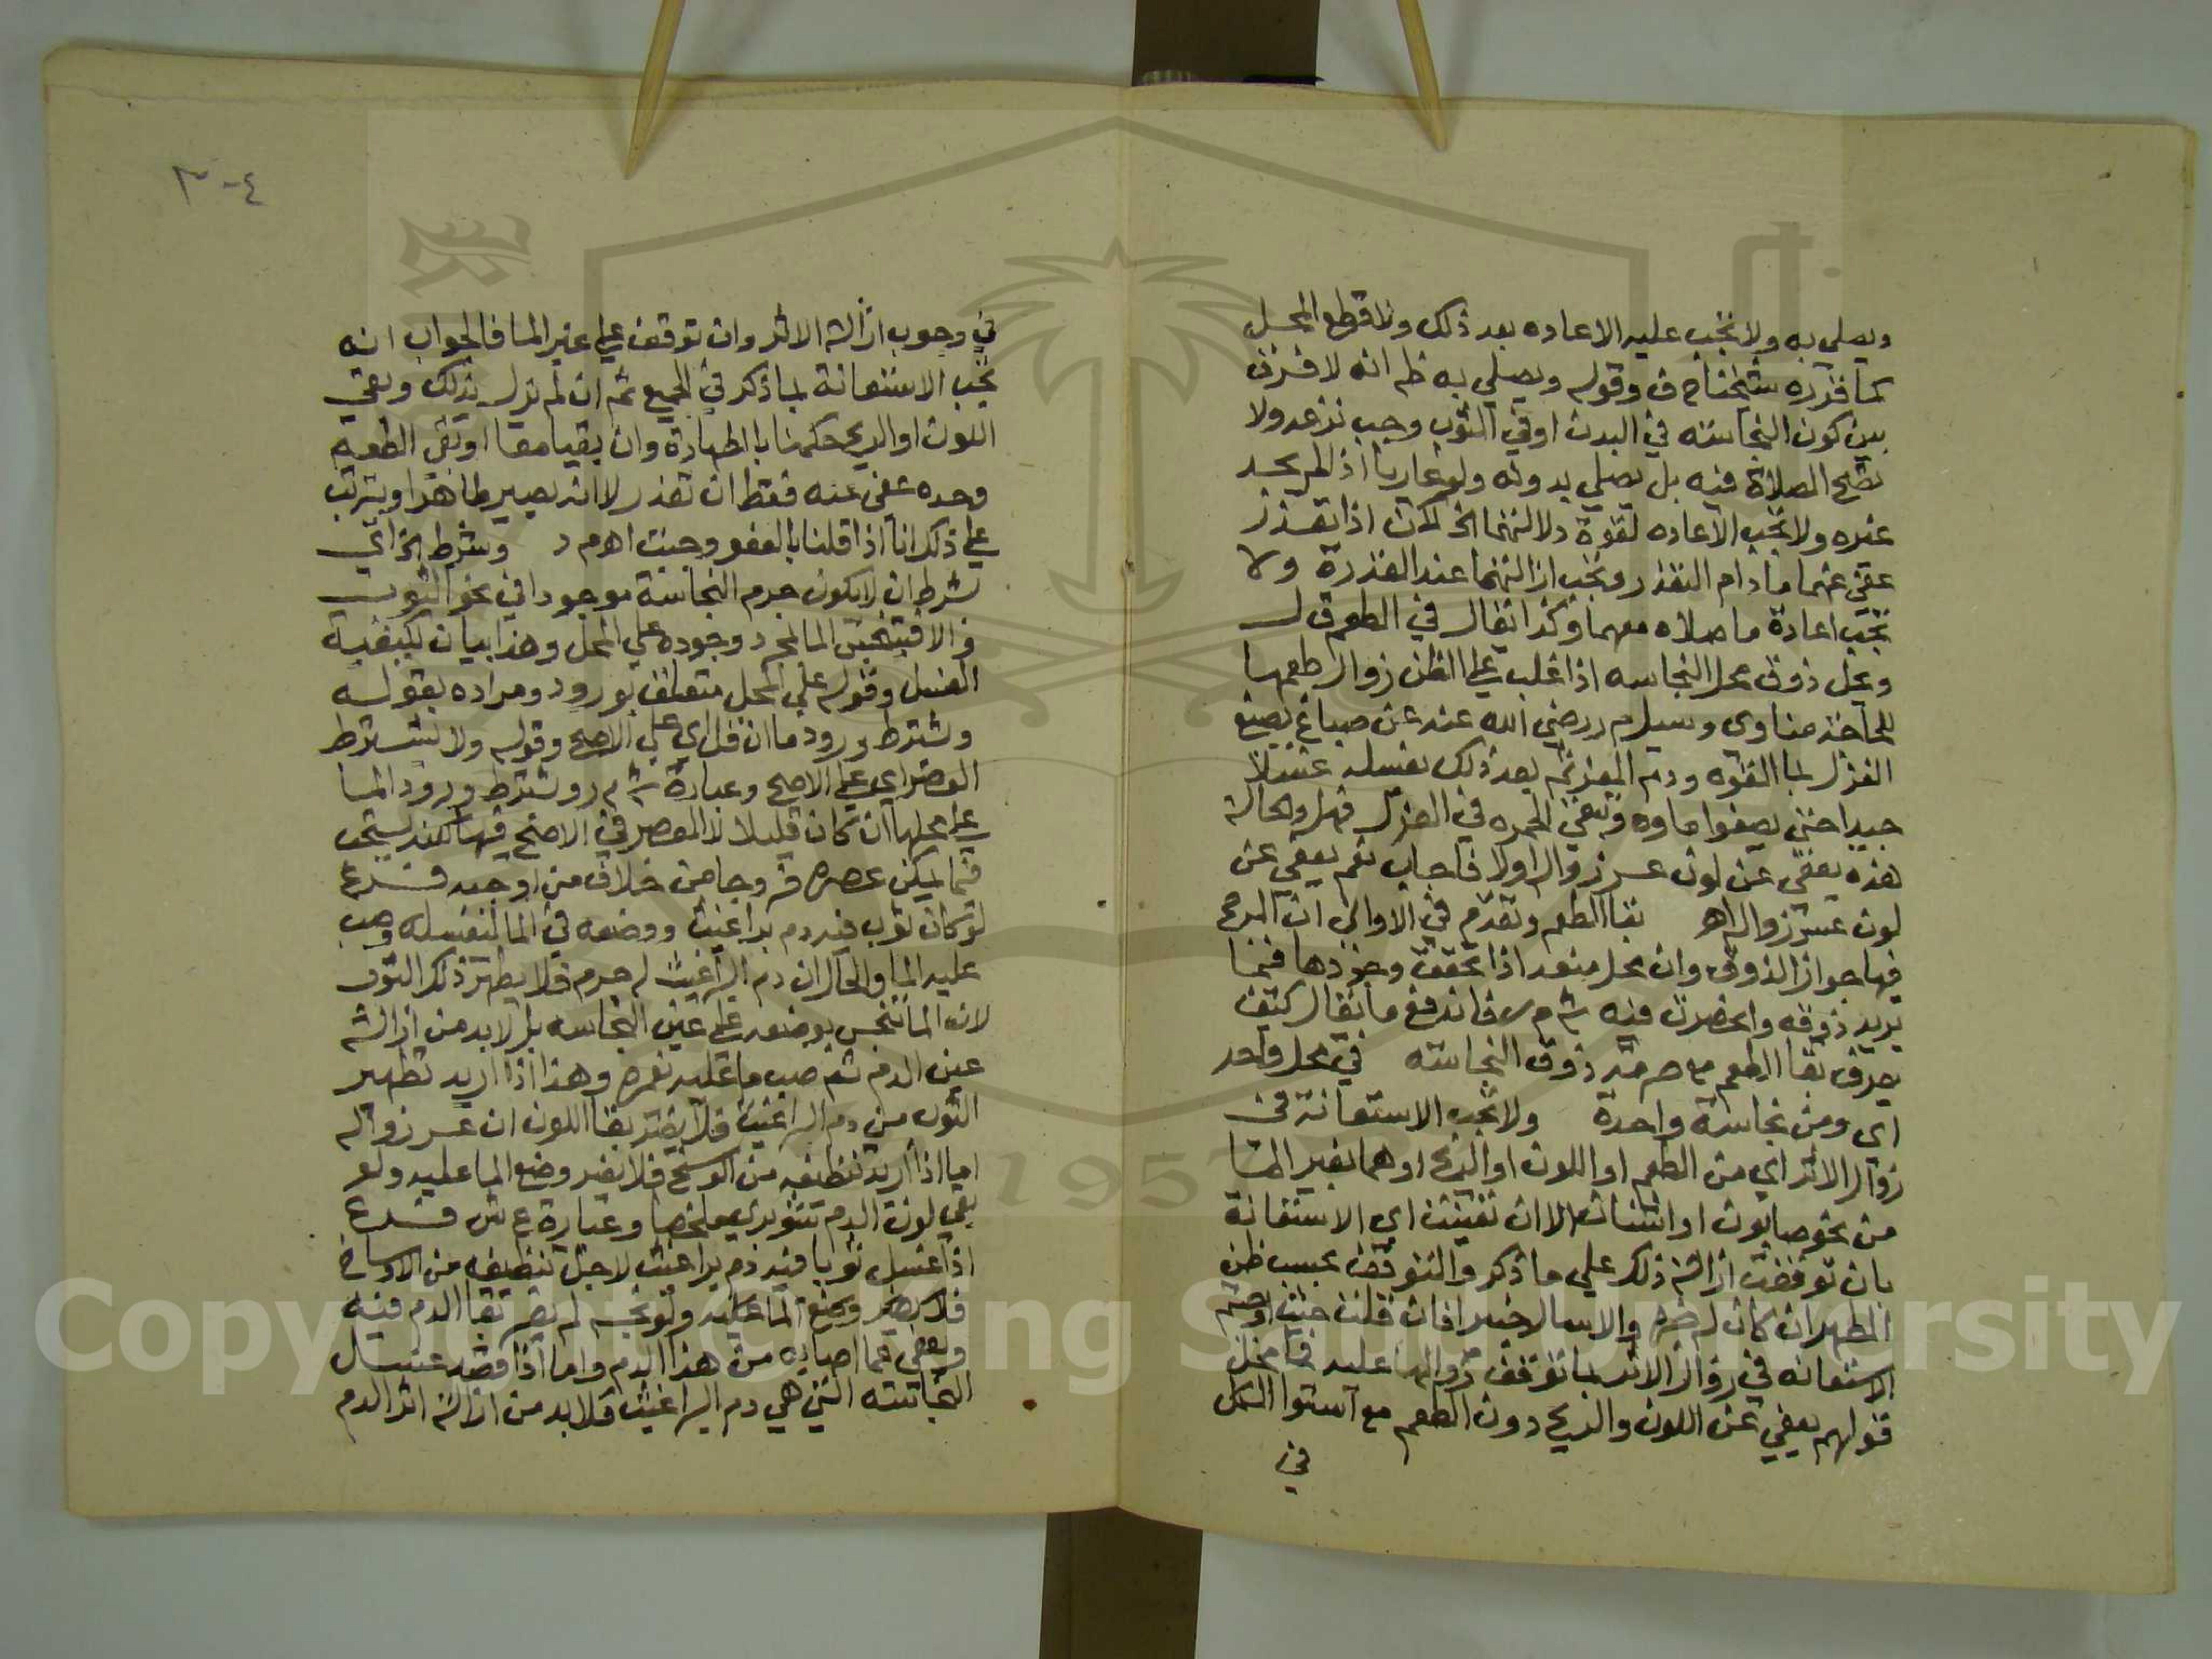 ويصلي به ولا تجب عليه الاعاده بعد ذلك ولا قطع المحل
كما قرره شيخنا ح ف وقوله ويصلي به ظم انه لا فرق
بين كون النجاسته في البدن او في الثوب وجب نزعه ولا
تصح الصلاة فيه بل يصلي بدونه ولو عاريا اذا لم يجد
غيره ولا تجب الاعاده لقوة دلالتهما الخ لكن اذا تعذر
عفي عنهما مادام التعذر وتجب ازالتهما عند القدرة ولا
تجب اعادة ما صلاه معهما وكذا يقال في الطعم ق ل
ويحل ذوق محل النجاسه اذا غلب على الظن زوال طعمها
للحاخذ مناوى وسيل م ر رضي الله عنه عن صباغ يصبغ
الغزل بما الفوه ودم المعز ثم بعد ذلك يغسله غسلا
جيدا حتى يصفوا ماوه وتبقى الحمره في الغزل فهل والحالة
هذه يعفى عن لون عسر زواله اولا فاجاب نعم يعفى عن
لون عسر زواله اهـ بقا الطعم وتقدم في الاواني ان المرجح
فيها جواز الذوق وان محل منعه اذا تحقق وجودها فيما
يريد ذوقه وانحصرت فيه ش م ر فاندفع ما يقال كيف
يعرف بقا الطعم مع حرمة ذوق النجاسته في محل واحد
اي ومن نجاسة واحدة ولا تجب الاستعانة في
زوال الاثر اي من الطعم او اللون او الريح او هما بغير الما
من نحو صابون او اشنان الا ان تعينت اي الاستعانة
بان توقفت ازالة ذلك علي ما ذكر والتوقف بحسب ظن
المطهر ان كان له خبره والا سال خبيرا فان قلت حيث اوجبتم
الاستعانه في زوال الاثر بما توقف زواله عليه فما محل
قولهم يعفي عن اللون والريح دون الطعم مع استوا الكل
في
٤-٣
في وجوب ازالة الاثر وان توقف علي غير الما فالجواب انه
تجب الاستعانة بما ذكر في الجميع ثم ان لم يزل بذلك وبقي
اللون او الريح حكمنا بالطهارة وان بقيا معا او بقي الطعم
وحده عفي عنه فقط ان تعذر لا انه يصير طاهرا ويترتب
علي ذلك انا اذا قلنا بالعفو وجبت اهـ م د وشرط الخ اي
شرط ان لا يكون جرم النجاسة موجودا في نحو الثوب
والا فيتنجس الما بمجرد وجوده علي المحل وهذا بيان لكيفية
الغسل وقوله علي المحل متعلق بورود ومراده بقوله
وشترط ورود ما ان قل اي علي الاصح وقوله ولا يشترط
العصر اي علي الاصح وعبارة ش م ر ويشترط ورود الما
علي محلها ان كان قليلا لا العصر في الاصح فيهما لكن يستحب
فيما يمكن عصره خروجا من خلاف من اوجبه فرع
لو كان ثوب فيه دم براغيث ووضعه في الما لنغسله وصب
عليه الما والحال ان دم البراغيث له جرم فلا يطهر ذلك الثوب
لانه الما تنجس بوضعه علي عين النجاسه بل لا بد من ازالة
عين الدم ثم صب ما عليه يغمره وهذا اذا اريد تطهير
الثوب من دم البراغيث فلا يضر بقا اللون ان عسر زواله
اما اذا اريد تنظيفه من الوسخ فلا يضر وضع الما عليه ولو
بقي لون الدم شوبري ملخصا وعبارة ع ش فرع
اذا غسل ثوبا فيه دم براغيث لاجل تنظيفه من الاوساخ
فلا يضر وضع الما عليه ولو نجسه لم يضر بقا الدم فيه
ويعفي عما اصابه من هذا الدم واما اذا قصد غسل
النجاسته التي هي دم البراغيث فلا بد من ازالة اثر الدم
1957
Copyright © King Saud University